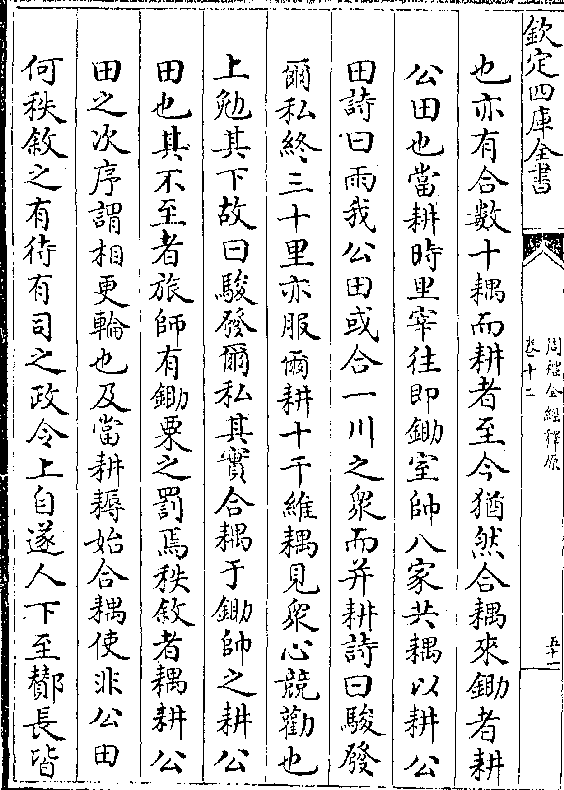 欽定四庫全書
周禮全經釋原
卷十二
五十一
也亦有合數十耦而耕者至今猶然合耦來鋤者耕
公田也當耕時里宰往即鋤室帥八家共耦以耕公
田詩曰雨我公田或合一川之衆而并耕詩曰駿發
爾私終三十里亦服爾耕十千維耦見衆心競勸也
上勉其下故曰駿發爾私其實合耦于鋤帥之耕公
田也其不至者旅師有鋤粟之罰焉秩敘者耦耕公
田之次序謂相更輪也及當耕耨始合耦使非公田
何秩敘之有待有司之政令上自遂人下至酇長皆